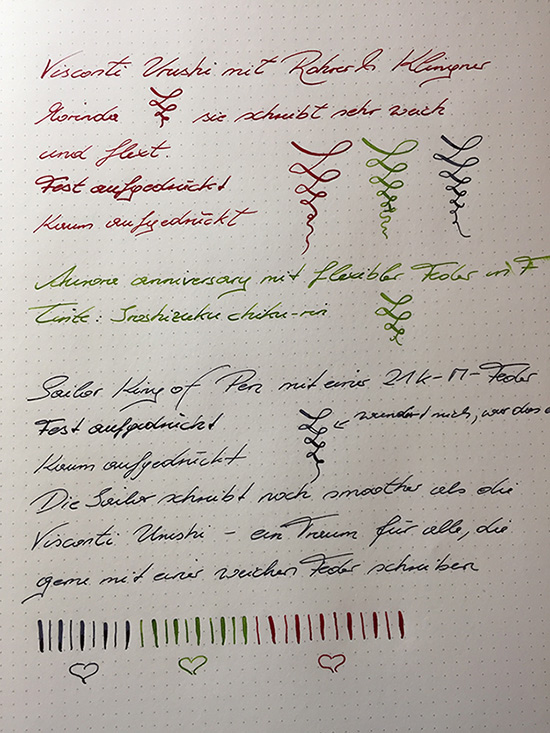 Visconti Urushi mit Rohrer & Klingner
Morinda sie schreibt sehr weich
und flext.
Fest aufgedrückt
Kaum aufgedrückt
Aurora anniversary mit flexibler Feder in F
Tinte: Iroshizuku chiku-rin
Sailor King of Pen mit einer 21k-M-Feder
Fest aufgedrückt
wundert mich, war dies
Kaum aufgedrückt
Die Sailor schreibt noch smoother als die
Visconti Urushi – ein Traum für alle, die
gerne mit einer weichen Feder schreiben